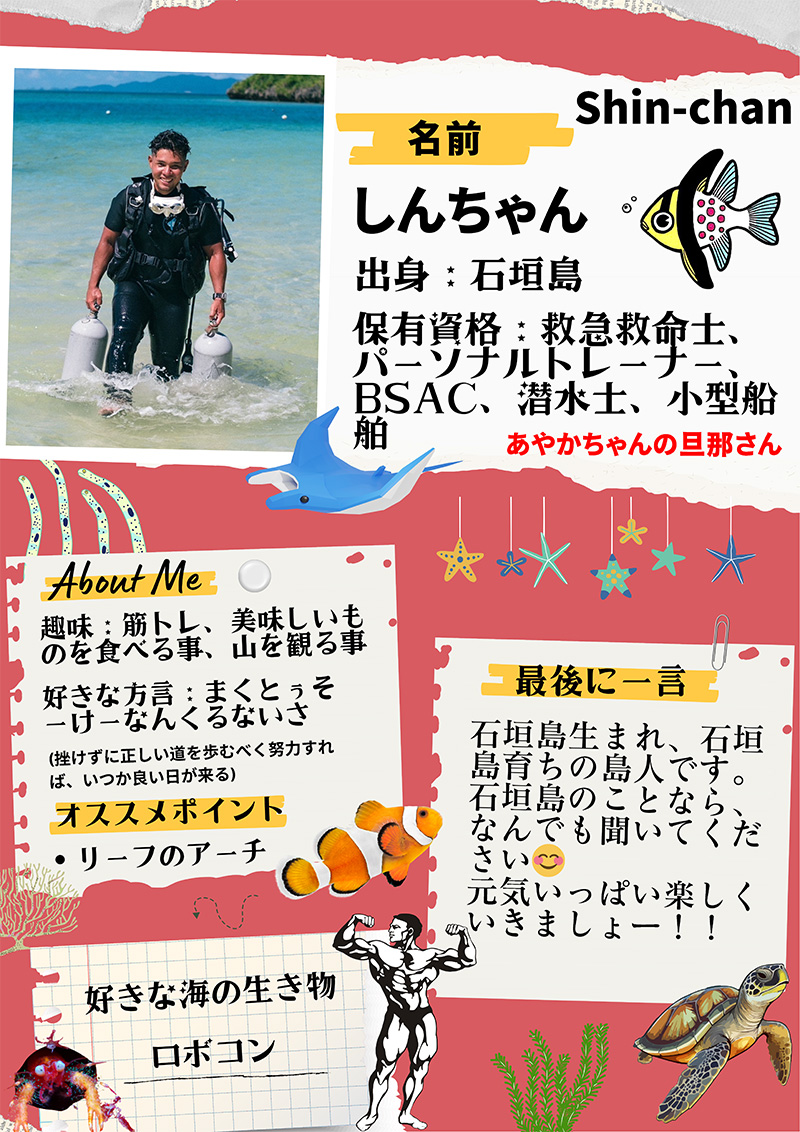 Shin-chan
名前
しんちゃん
出身：石垣島
保有資格：救急救命士、
パーソナルトレーナー、
BSAC、潜水士、小型船
舶
あやかちゃんの旦那さん
About Me
趣味：筋トレ、美味しいも
のを食べる事、山を観る事
好きな方言：まくとぅそ
ーけーなんくるないさ
(挫けずに正しい道を歩むべく努力すれ
ば、いつか良い日が来る)
オススメポイント
• リーフのアーチ
最後に一言
石垣島生まれ、石垣
島育ちの島人です。
石垣島のことなら、
なんでも聞いてくだ
さい😊
元気いっぱい楽しく
いきましょー！！
好きな海の生き物
ロボコン